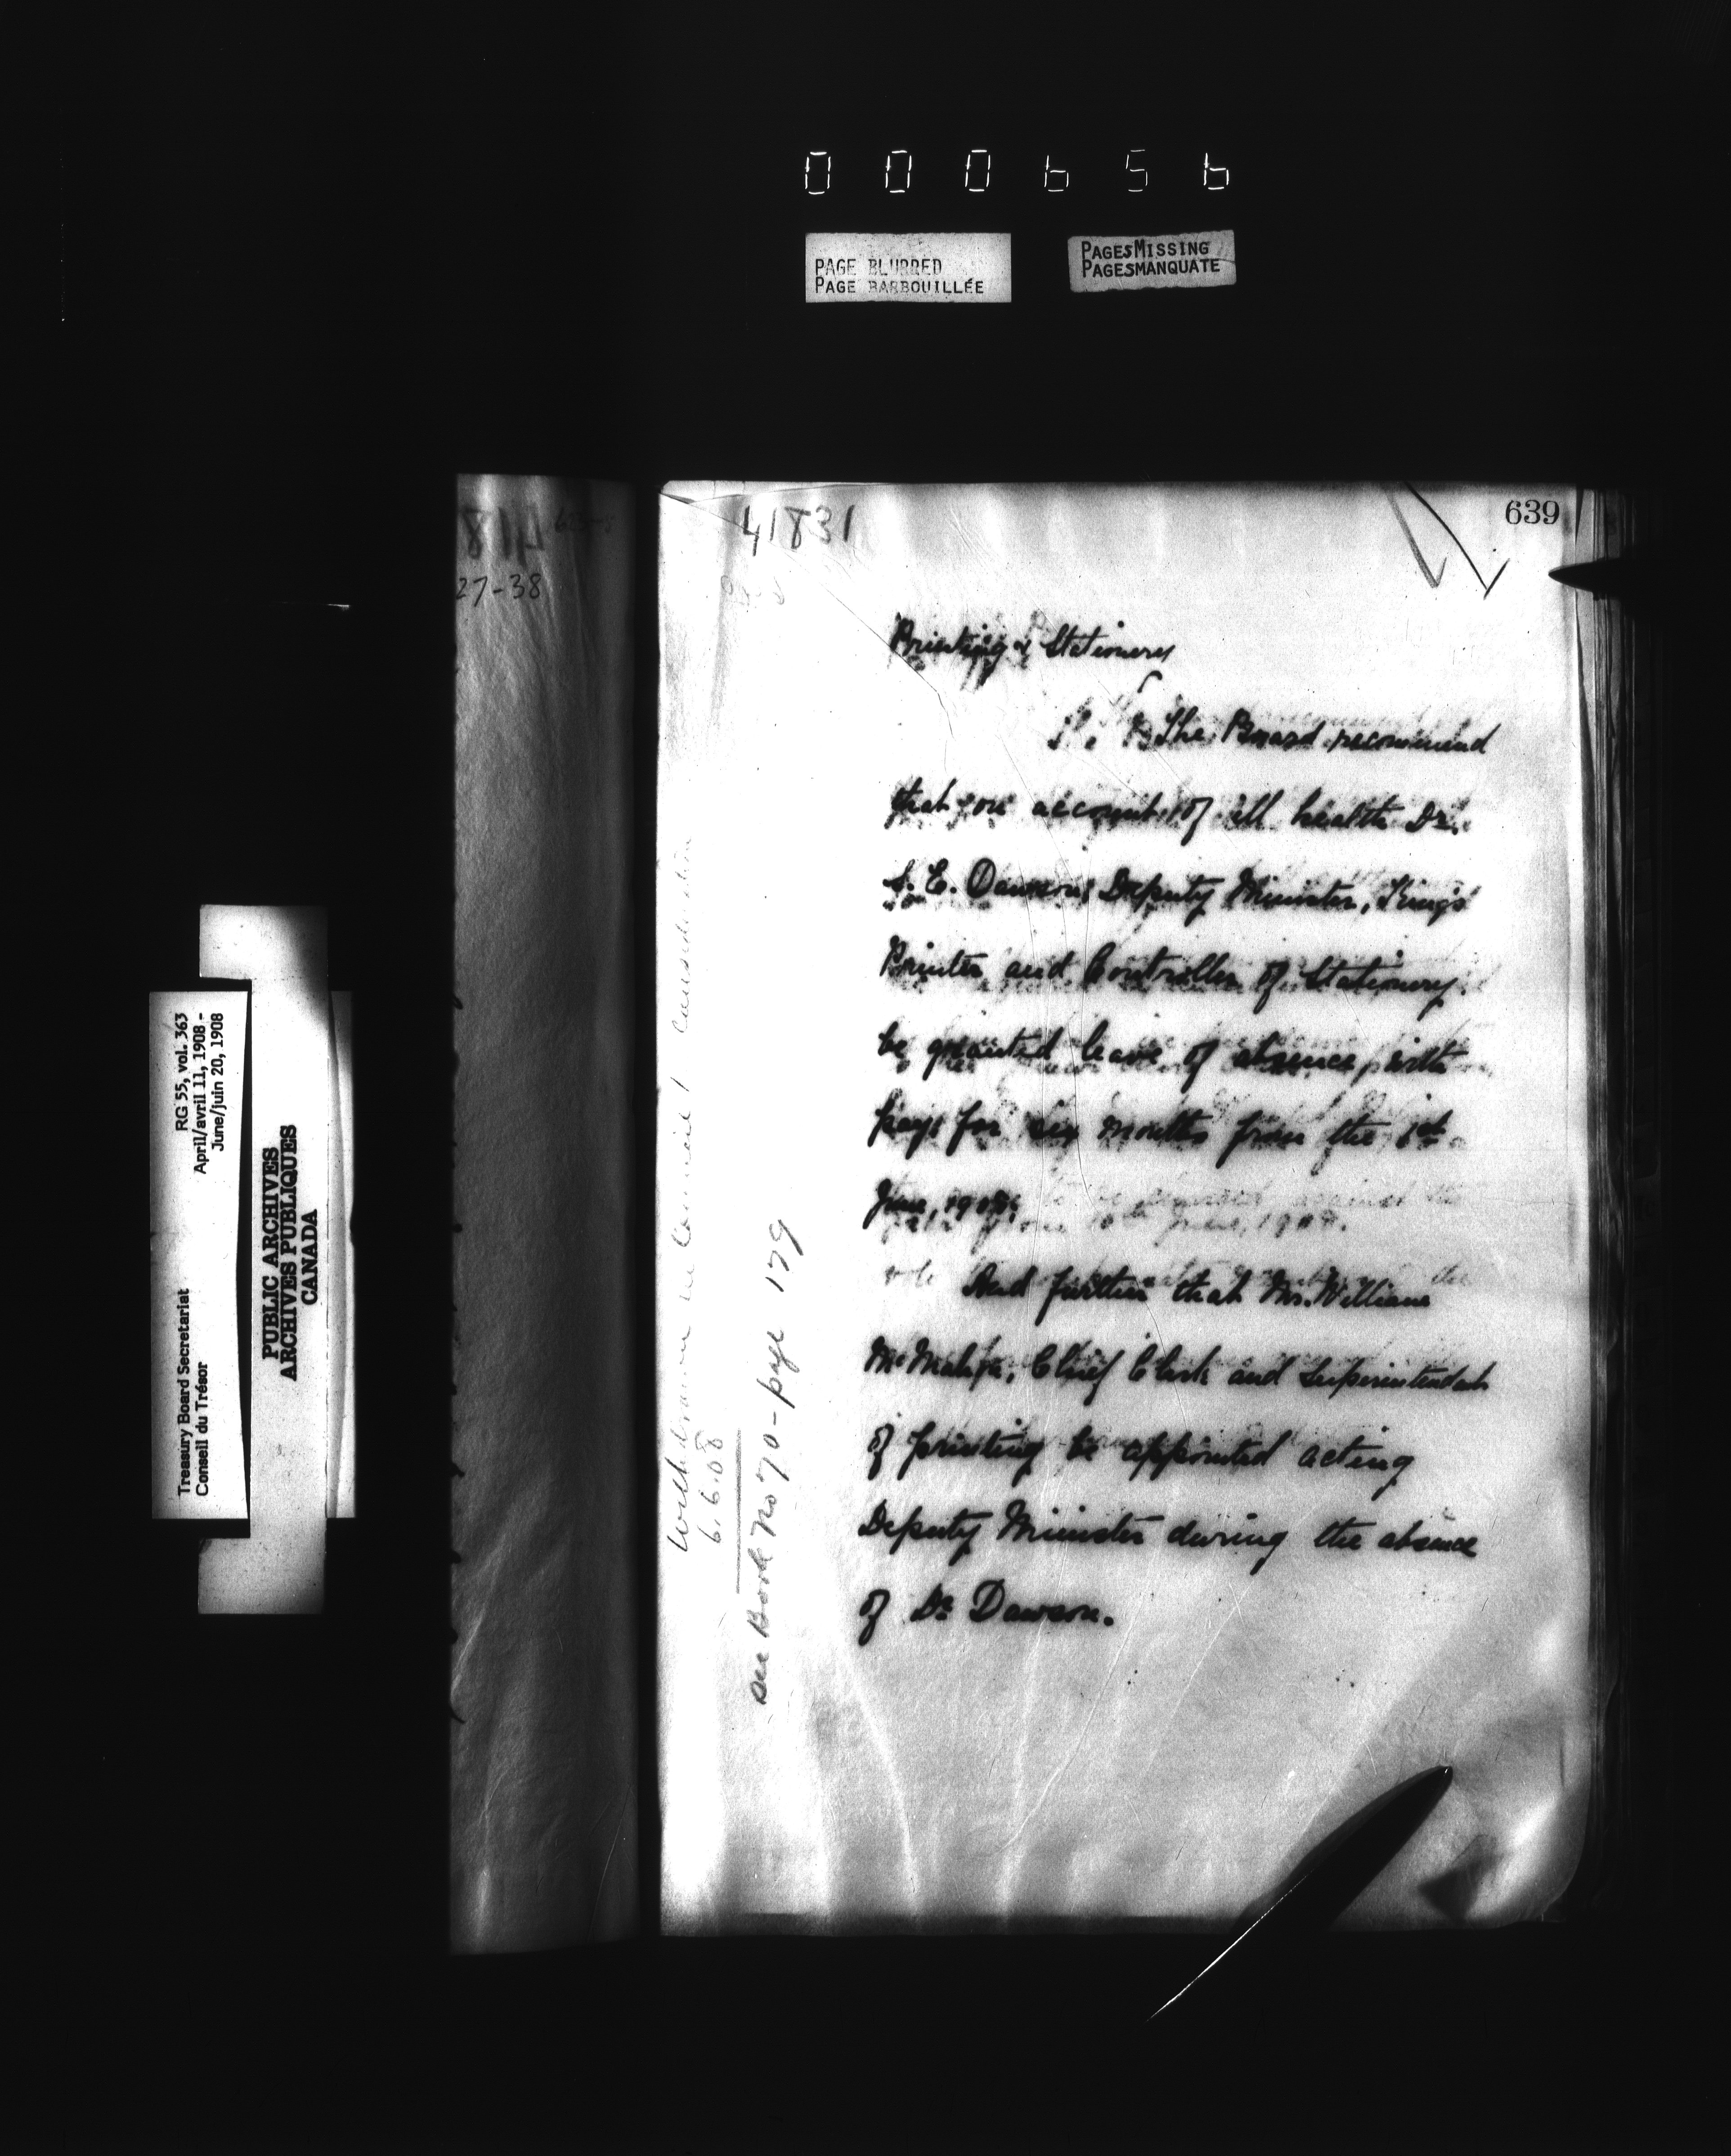 000656
PAGE BLURRED
PAGE BARBOUILLÉE
PAGES MISSING
PAGES MANQUATE
639
41831
27-38
Printing & Stationery
The Board recommend
that on account of ill health Dr.
S. E. Dawson, Deputy Minister, King's
Printer and Controller of Stationery
be granted leave of absence with
pay for six months from the 1st
June, 1908.
And further that Mr. William
McMahon, Chief Clerk and Superintendent
of printing be appointed acting
Deputy Minister during the absence
of Dr Dawson.
Withdrawn in Council / consideration
6.6.08
see Book No 70 - page 179
RG 55, vol. 363
April/avril 11, 1908 -
June/juin 20, 1908
Treasury Board Secretariat
Conseil du Trésor
PUBLIC ARCHIVES
ARCHIVES PUBLIQUES
CANADA